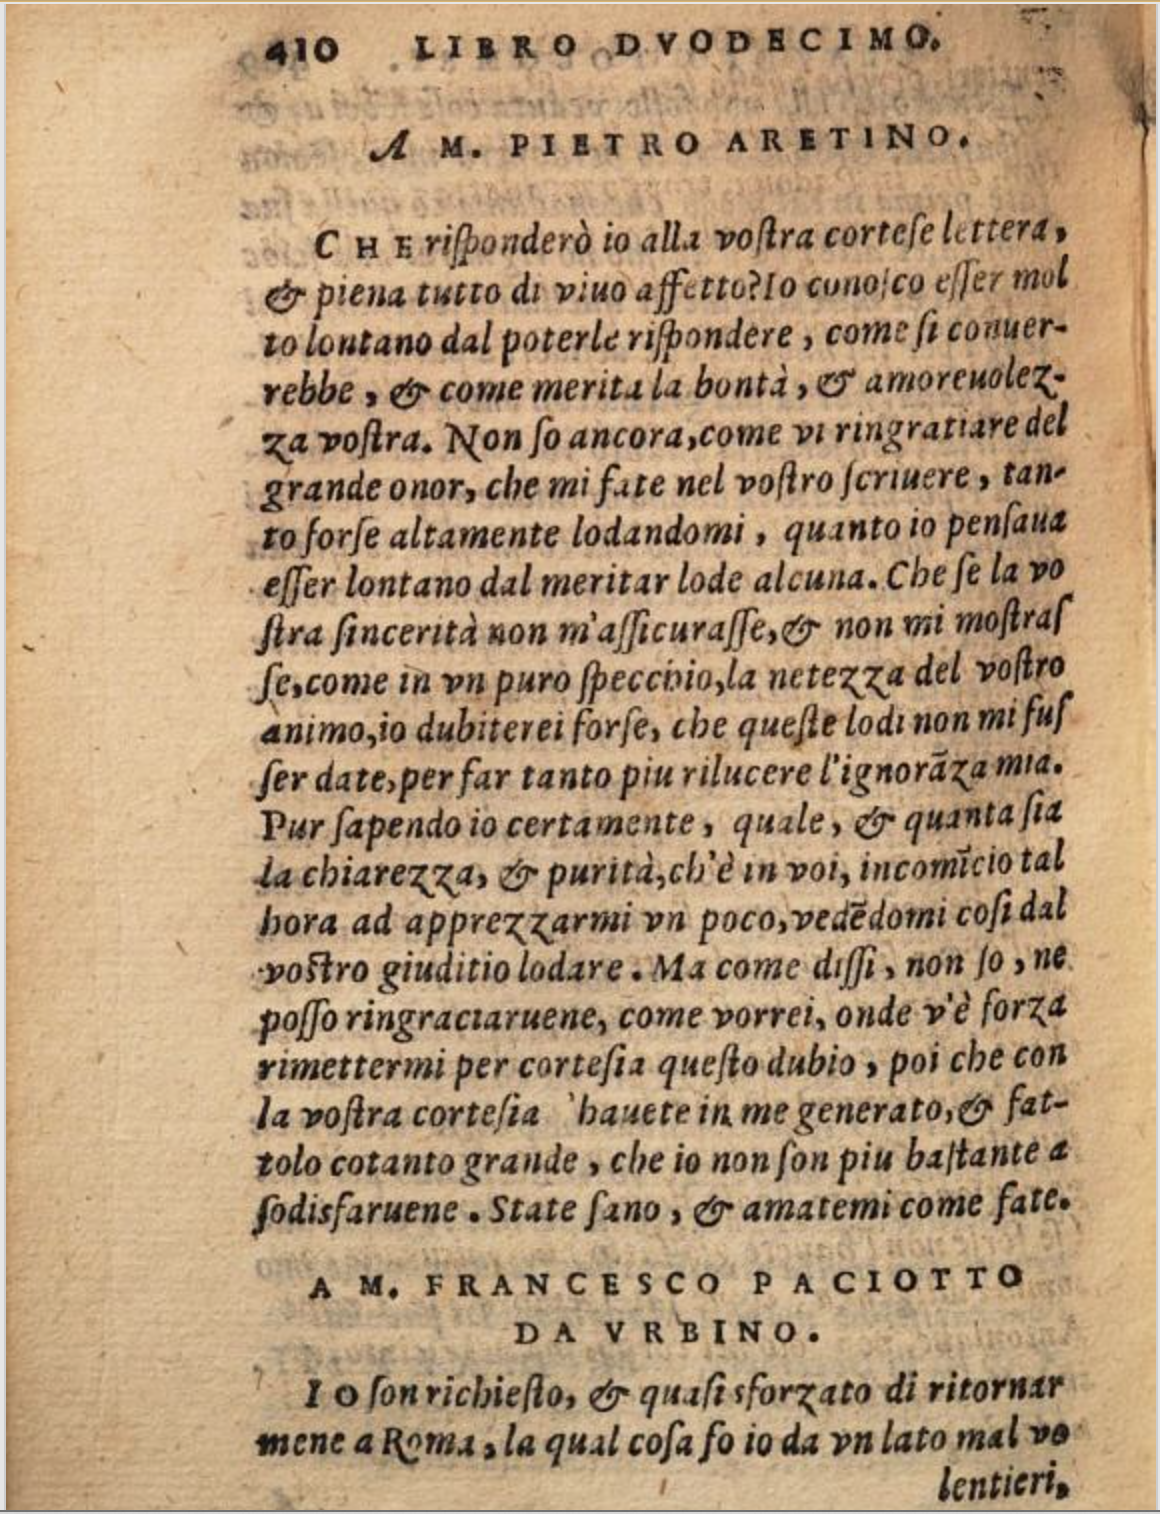 410 LIBRO DVODECIMO.
A M. PIETRO ARETINO.
CHE riſponderò io alla voſtra corteſe lettera,
& piena tutto di viuo affetto? Io conoſco eſſer mol
to lontano dal poterle riſpondere, come ſi conuer-
rebbe, & come merita la bontà, & amoreuolez-
za voſtra. Non ſo ancora, come vi ringratiare del
grande onor, che mi fate nel voſtro ſcriuere, tan-
to forſe altamente lodandomi, quanto io penſaua
eſſer lontano dal meritar lode alcuna. Che ſe la vo
ſtra ſincerità non m'aſſicuraſſe, & non mi moſtraſ
ſe, come in vn puro ſpecchio, la netezza del voſtro
animo, io dubiterei forſe, che queſte lodi non mi fuſ
ſer date, per far tanto piu rilucere l'ignorāza mia.
Pur ſapendo io certamente, quale, & quanta ſia
la chiarezza, & purità, ch'è in voi, incomīcio tal
hora ad apprezzarmi vn poco, vedēdomi coſi dal
voſtro giuditio lodare. Ma come diſſi, non ſo, ne
poſſo ringraciaruene, come vorrei, onde v'è forza
rimettermi per corteſia queſto dubio, poi che con
la voſtra corteſia 'hauete in me generato, & fat-
tolo cotanto grande, che io non ſon piu baſtante a
ſodisfaruene. State ſano, & amatemi come fate.
A M. FRANCESCO PACIOTTO
DA VRBINO.
IO ſon richieſto, & quaſi sforzato di ritornar
mene a Roma, la qual coſa fo io da vn lato mal vo
lentieri,